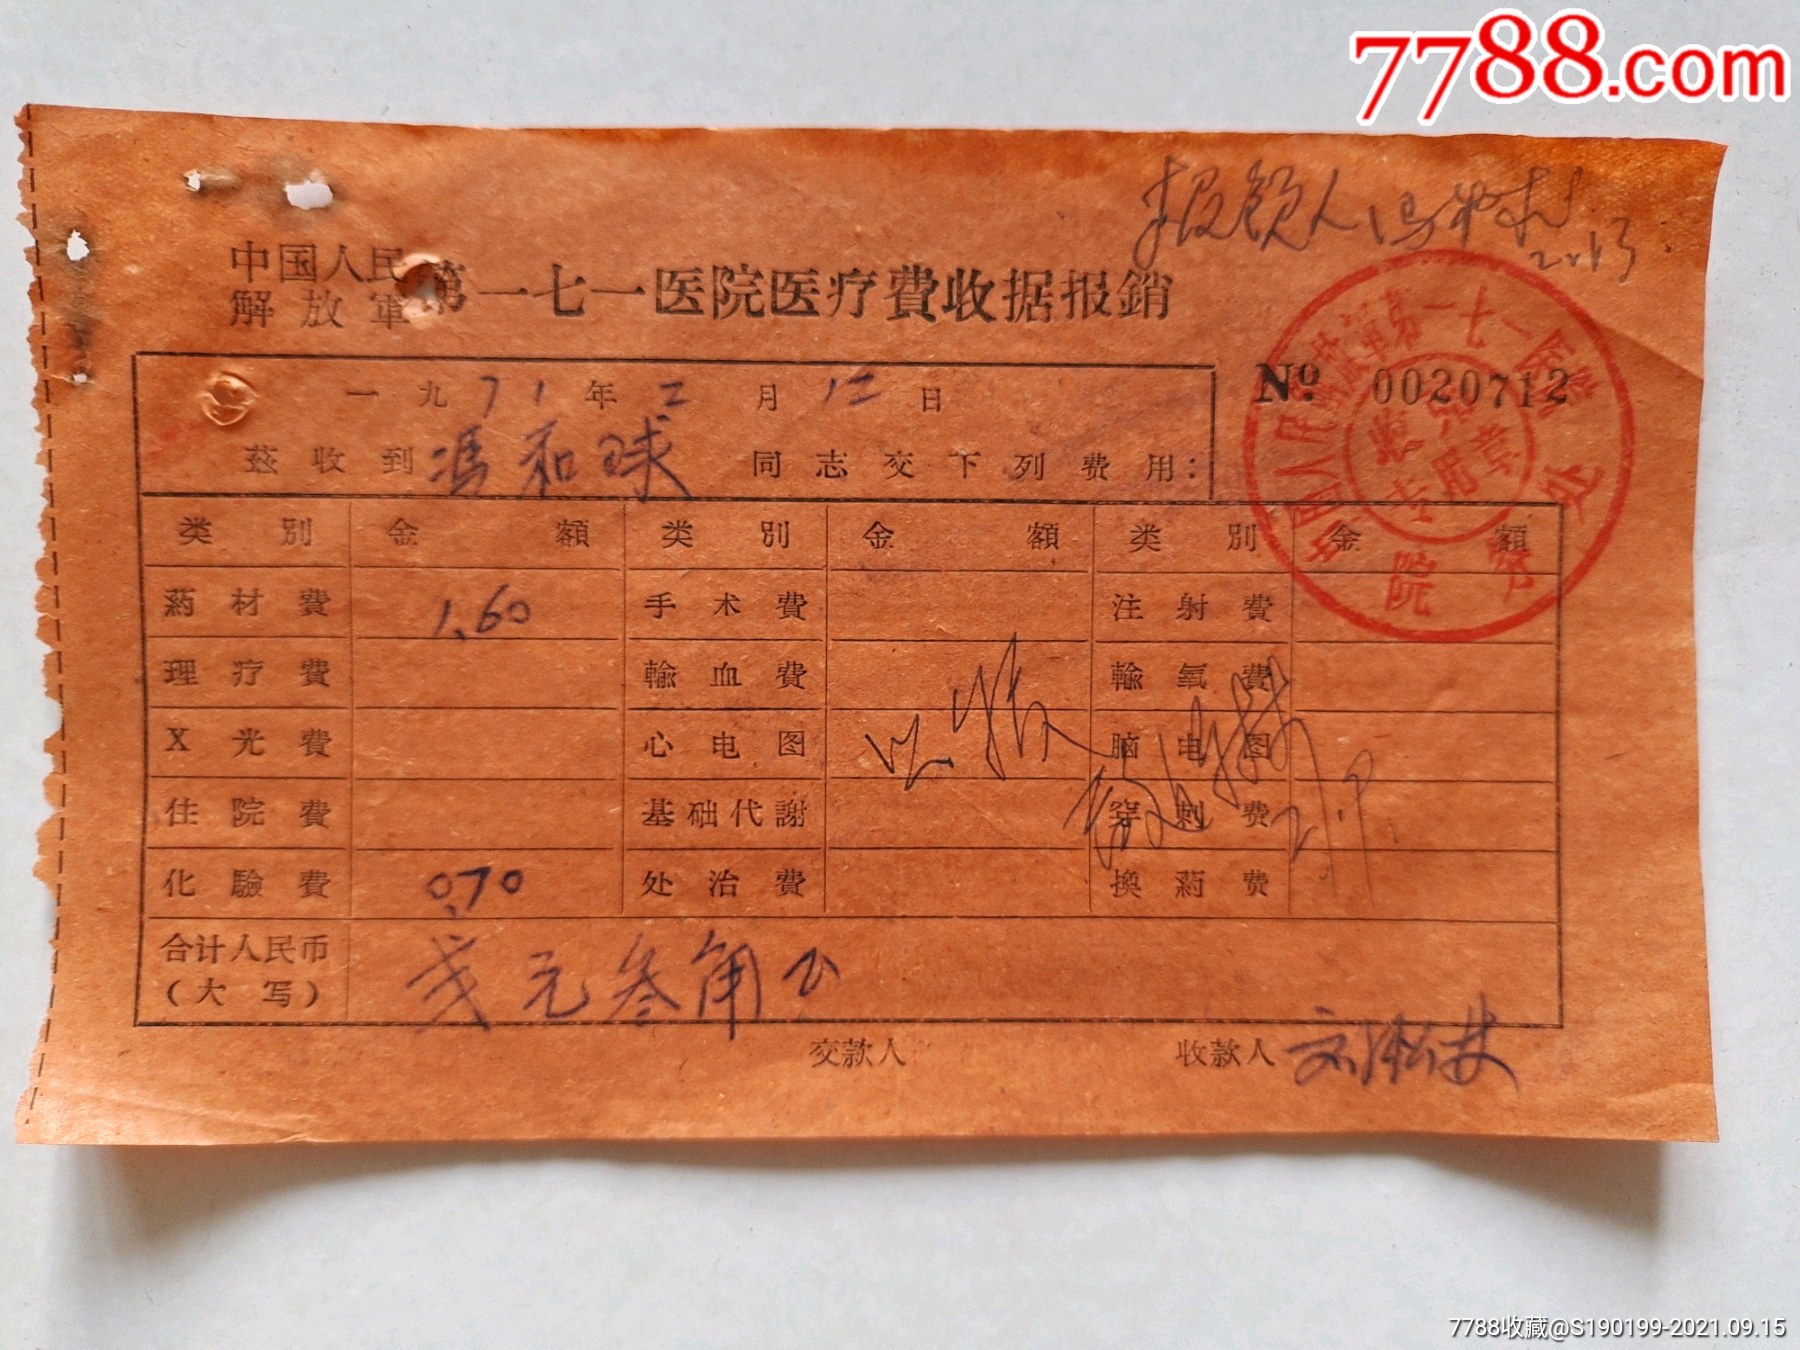 7788.com
报领人冯
2.13
中国人民解放軍第一七一医院医疗費收据报銷
No 0020712
一九71年二月12日
茲收到冯和球同志交下列费用：
类別 金額 类別 金額 类別 金額
葯材費 1.60 手术費 注射費
理疗費 輸血費 輸氧費
X光費 心电图 脑电图
住院費 基础代謝 穿刺费
化驗費 0.70 处治費 換葯费
合计人民币(大写) 弍元叁角
交款人 收款人
中国人民解放軍第一七一医院
院务处
专用章
7788收藏@S190199-2021.09.15